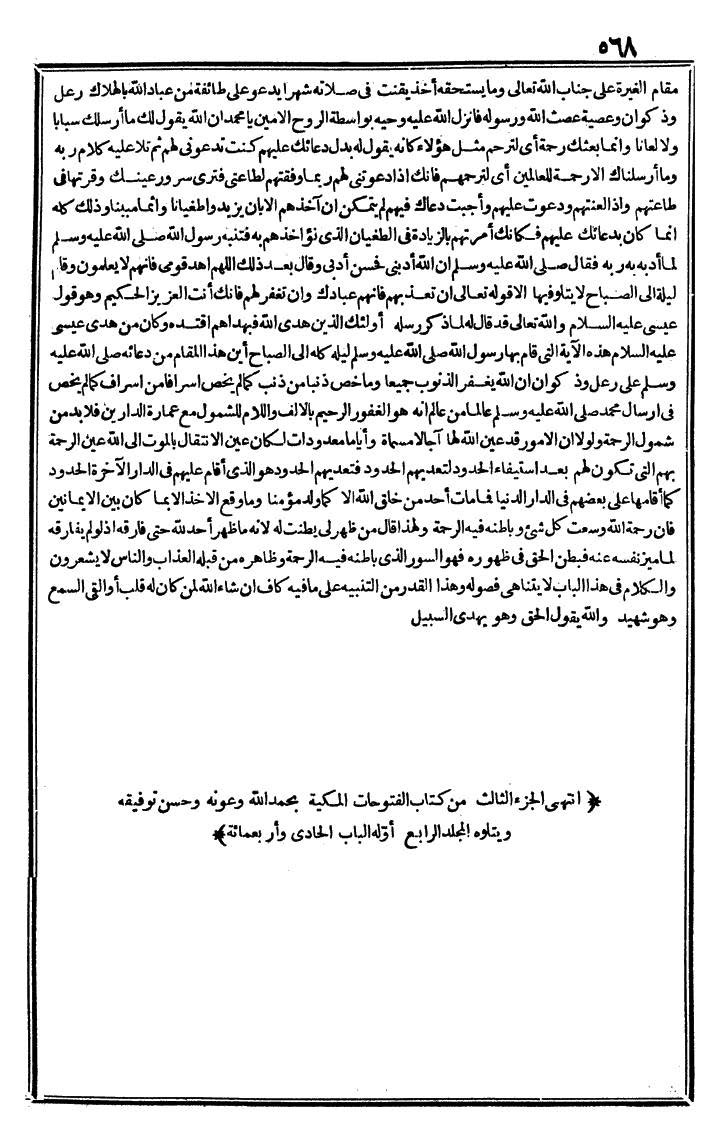 ٥٦٨
مقام الغيرة على جناب الله تعالى وما يستحقه أخذ يقنت فى صلاته شهرا يدعو على طائفة من عباد الله بالهلاك رعل
وذكوان وعصية عصت الله ورسوله فانزل الله عليه وحيه بواسطة الروح الامين يا محمد ان الله يقول لك ما أرسلك سبابا
ولا لعانا وانما بعثك رحمة أى لترحم مثل هؤلاء كانه يقول له بدل دعائك عليهم كنت تدعونى لهم ثم تلا عليه كلام ربه
وما أرسلناك الا رحمة للعالمين أى لترحمهم فانك اذا دعوتنى لهم ربما وفقتهم لطاعتى فترى سرور عينك وقرتها فى
طاعتهم واذا لعنتهم ودعوت عليهم وأجبت دعاك فيهم لم يتمكن ان آخذهم الا بان يزيدوا طغيانا واثما مبينا وذلك كله
انما كان بدعائك عليهم فكانك أمرتهم بالزيادة فى الطغيان الذى نؤاخذهم به فتنبه رسول الله صلى الله عليه وسلم
لما أدبه به ربه فقال صلى الله عليه وسلم ان الله أدبنى فحسن أدبى وقال بعد ذلك اللهم اهد قومى فانهم لا يعلمون وقام
ليلة الى الصباح لا يتلو فيها الا قوله تعالى ان تعذبهم فانهم عبادك وان تغفر لهم فانك أنت العزيز الحكيم وهو قول
عيسى عليه السلام والله تعالى قد قال له لما ذكر رسله أولئك الذين هدى الله فبهداهم اقتده وكان من هدى عيسى
عليه السلام هذه الآية التى قام بها رسول الله صلى الله عليه وسلم ليله كله الى الصباح أين هذا المقام من دعائه صلى الله عليه
وسلم على رعل وذكوان ان الله يغفر الذنوب جميعا وما خص ذنبا من ذنب كما لم يخص اسرافا من اسراف كما لم يخص
فى ارسال محمد صلى الله عليه وسلم عالما من عالم انه هو الغفور الرحيم بالالف واللام للشمول مع عمارة الدارين فلا بد من
شمول الرحمة ولولا ان الامور قد عين الله لها آجالا مسماة وأياما معدودات لكان عين الانتقال بالموت الى الله عين الرحمة
بهم التى تكون لهم بعد استيفاء الحدود لتعديهم الحدود فتعديهم الحدود هو الذى أقام عليهم فى الدار الآخرة الحدود
كما أقامها على بعضهم فى الدار الدنيا فما مات أحد من خلق الله الا كما ولد مؤمنا وما وقع الاخذ الا بما كان بين الايمانين
فان رحمة الله وسعت كل شئ وباطنه فيه الرحمة ولهذا قال من ظهر لى بطنت له لانه ما ظهر أحد لله حتى فارقه اذ لو لم يفارقه
لما ميز نفسه عنه فبطن الحق فى ظهوره فهو السور الذى باطنه فيه الرحمة وظاهره من قبله العذاب والناس لا يشعرون
والكلام فى هذا الباب لا يتناهى فصوله وهذا القدر من التنبيه على ما فيه كاف ان شاء الله لمن كان له قلب أو ألقى السمع
وهو شهيد والله يقول الحق وهو يهدى السبيل
﴿ انتهى الجزء الثالث من كتاب الفتوحات المكية بحمد الله وعونه وحسن توفيقه
ويتلوه المجلد الرابع أوّله الباب الحادى وأربعمائة ﴾